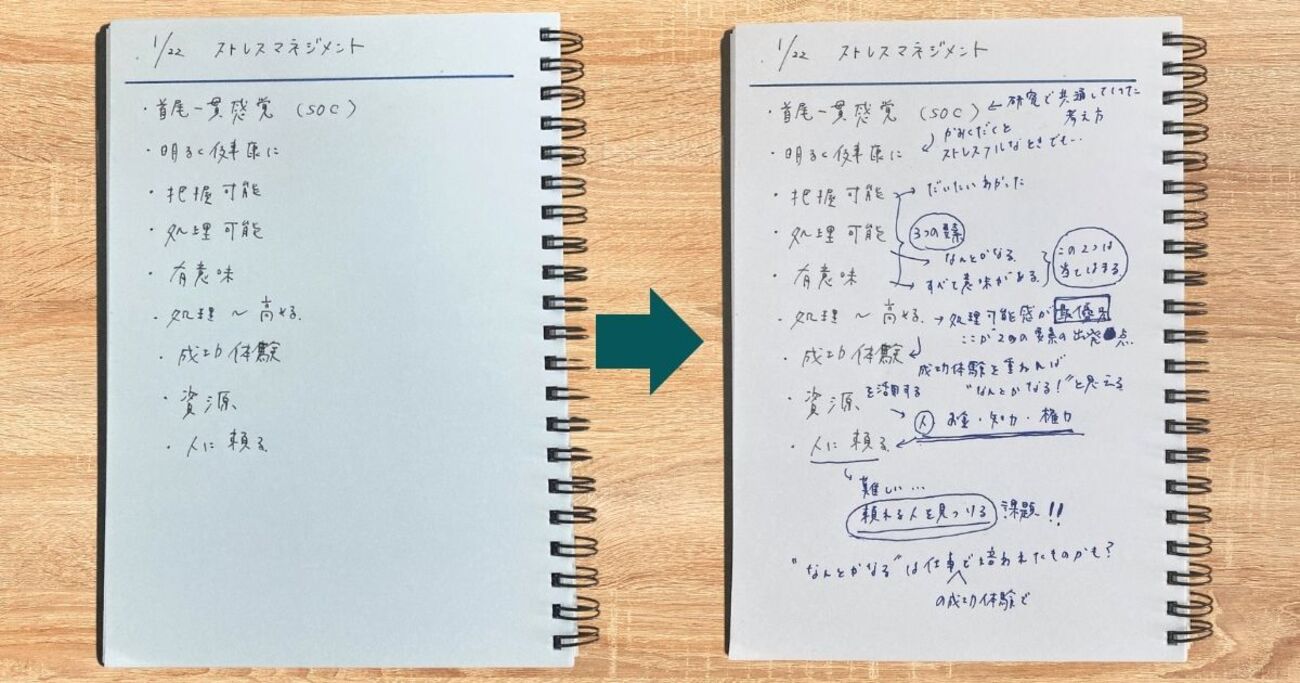 1/22 ストレスマネジメント
・首尾一貫感覚 (SOC)
・明るく健康に
・把握可能
・処理可能
・有意味
・処理〜高める
・成功体験
・資源
・人に頼る
1/22 ストレスマネジメント
・首尾一貫感覚 (SOC) ← 研究で共通していた
考え方
かみくだくと
・明るく健康に ストレスフルなときでも…
・把握可能 → だいたいわかった
・処理可能 3つの要素
→ なんとかなる
・有意味 → すべて意味がある
この2つは
当てはまる
・処理〜高める → 処理可能感が最優先
ここが2つの要素の出発点
・成功体験
成功体験を重ねれば
"なんとかなる!"と思える
・資源を活用する
→ 人 お金・知力・権力
・人に頼る ←
難しい…
頼れる人を見つける 課題!!
"なんとかなる"は仕事で培われたものかも?
の成功体験で